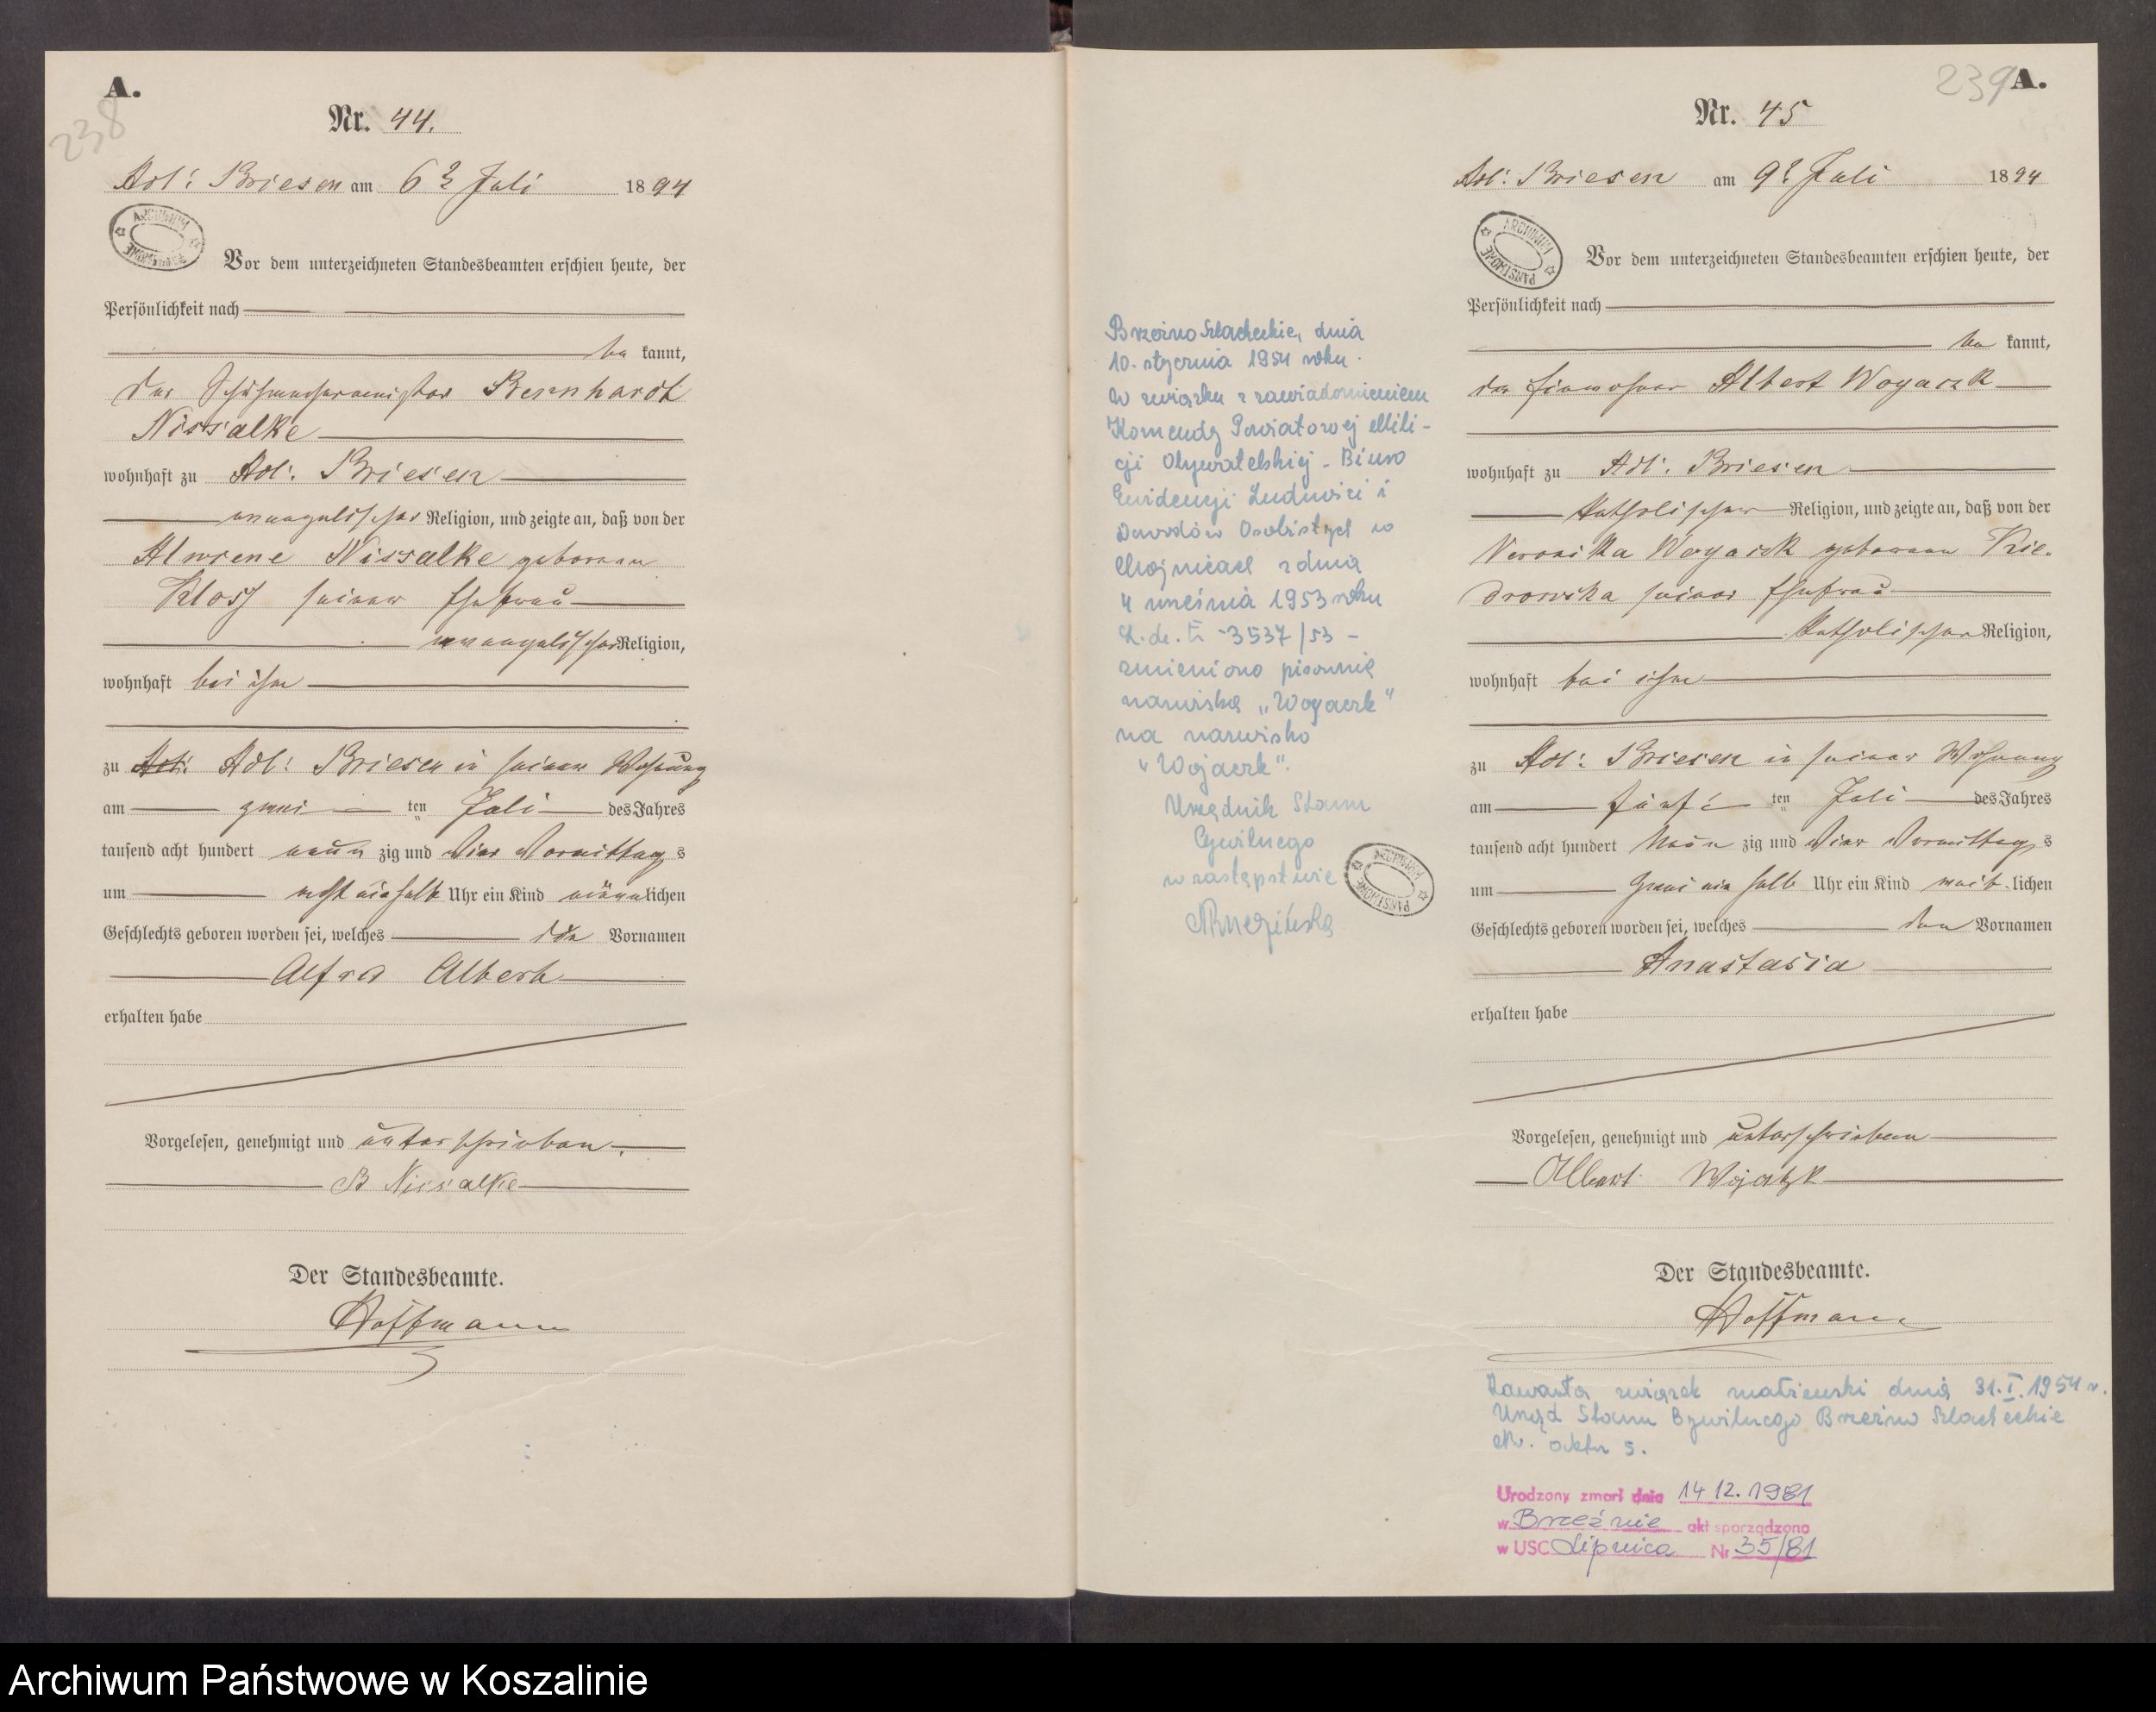 A.
238
Nr. 44.
Adl: Briesen am 6t Juli 1894
ARCHIWUM PAŃSTWOWE
Vor dem unterzeichneten Standesbeamten erschien heute, der
Persönlichkeit nach
be kannt,
der Schuhmachermeister Bernhardt
Nissalke
wohnhaft zu Adl: Briesen
evangelischer Religion, und zeigte an, daß von der
Alwiene Nissalke geborenen
Kloss seiner Ehefrau
evangelischer Religion,
wohnhaft bei ihm
zu Adl: Adl: Briesen in seiner Wohnung
am zwei ten Juli des Jahres
tausend acht hundert neun zig und vier Vormittag s
um acht ein halb Uhr ein Kind männlichen
Geschlechts geboren worden sei, welches den Vornamen
Alfred Albert
erhalten habe
Vorgelesen, genehmigt und unterschrieben.
B Nissalke
Der Standesbeamte.
Hoffmann
239 A.
Nr. 45
Adl: Briesen am 9t Juli 1894
ARCHIWUM PAŃSTWOWE
Vor dem unterzeichneten Standesbeamten erschien heute, der
Persönlichkeit nach
be kannt,
der Einwohner Albert Wogaczk
wohnhaft zu Adl: Briesen
katholischer Religion, und zeigte an, daß von der
Veronika Wogaczk geborenen Kie-
drowska seiner Ehefrau
katholischer Religion,
wohnhaft bei ihm
zu Adl: Briesen in seiner Wohnung
am fünf ten Juli des Jahres
tausend acht hundert Neun zig und vier Vormittag s
um zwei ein halb Uhr ein Kind weib lichen
Geschlechts geboren worden sei, welches den Vornamen
Anastasia
erhalten habe
Vorgelesen, genehmigt und unterschrieben
Albert Wojatzk
Der Standesbeamte.
Hoffmann
Brzeźno Szlacheckie, dnia
10. stycznia 1954 roku.
W związku z zawiadomieniem
Komendy Powiatowej Mili-
cji Obywatelskiej - Biuro
Ewidencji Ludności i
Dowodów Osobistych w
Chojnicach z dnia
4 września 1953 roku
3537/53 -
zmieniono pisownię
nazwiska „Wogaczk"
na nazwisko
„Wojaczk".
Urzędnik Stanu
Cywilnego
w zastępstwie
ARCHIWUM PAŃSTWOWE
Zawarła związek małżeński dnia 31.I.1954 r.
Urząd Stanu Cywilnego Brzeźno Szlacheckie
Nr. aktu 5.
Urodzony zmarł dnia 14 12. 1981
w Brzeźnie akt sporządzono
w USC Lipnica Nr 35/81
Archiwum Państwowe w Koszalinie